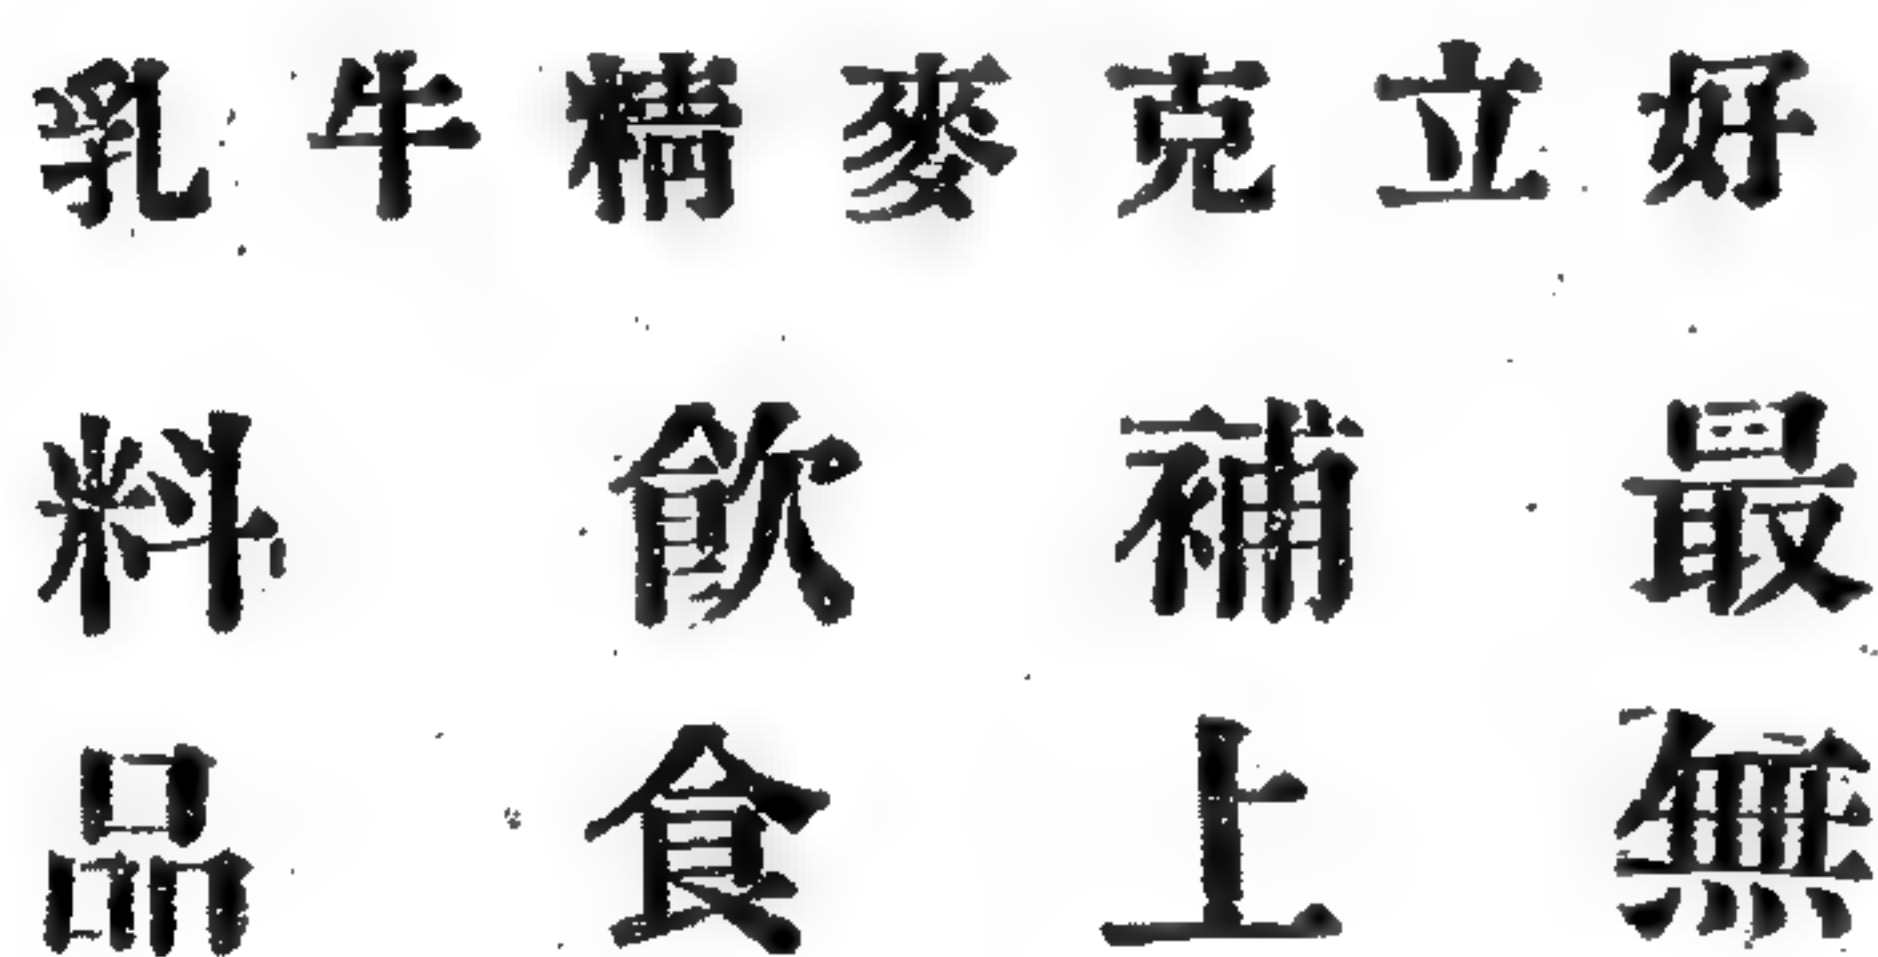 好立克麥精牛乳
最補飲料
無上食品